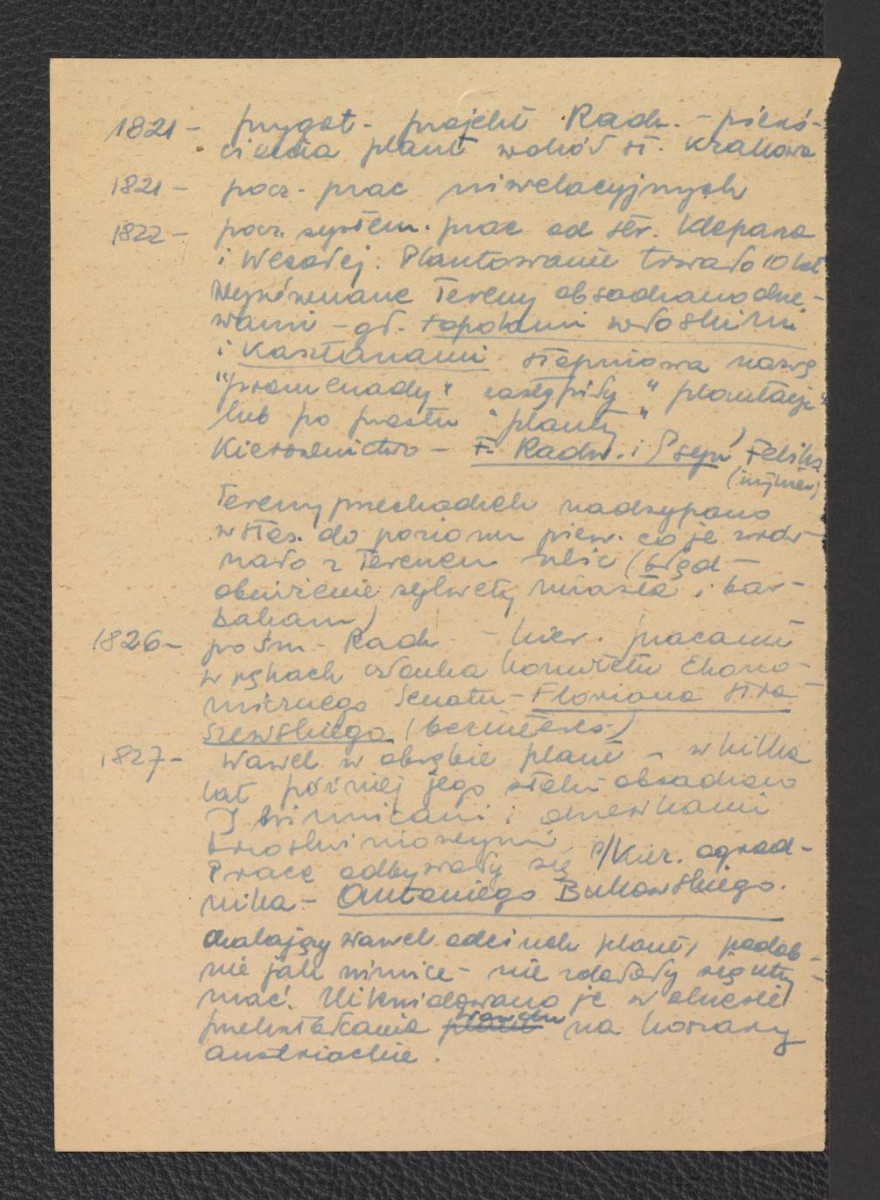 1821 - przygot. projekt Radw. - pierś-
cienia plant wokół st. Krakowa
1821 - pocz. prac niwelacyjnych
1822 - pocz. system. prac od str. Kleparza
i Wesołej. Plantowanie trwało 10 lat
Wyrównane tereny obsadzano drze-
wami - gł. topolami włoskimi
i Kasztanami stopniowo nazwę
"promenady" zastąpiły "plantacje"
lub po prostu "planty"
Kierownictwo - F. Radw. i syn Feliks
(inżynier)
Tereny przechadzek nadsypano
w stos. do poziomu pierw. co je zrów-
nało z terenem ulic (błąd -
obniżenie sylwety miasta i bar-
bakanu)
1826 - po śm. Radw. - kier. pracami
w rękach członka Komitetu Ekono-
micznego Senatu - Floriana Stra-
szewskiego (bezinteres.)
1827 - Wawel w obrębie plant - w kilka
lat później jego stoki obsadzono
winnicami i drzewkami
brzoskwiniowymi
Prace odbywały się p/kier. ogrod-
nika - Antoniego Bukowskiego.
Okalający Wawel odcinek plant, podob-
nie jak winnice - nie zdołały się utrzy-
mać. Zlikwidowano je w okresie
przekształcania plant Wawelu na koszary
austriackie.